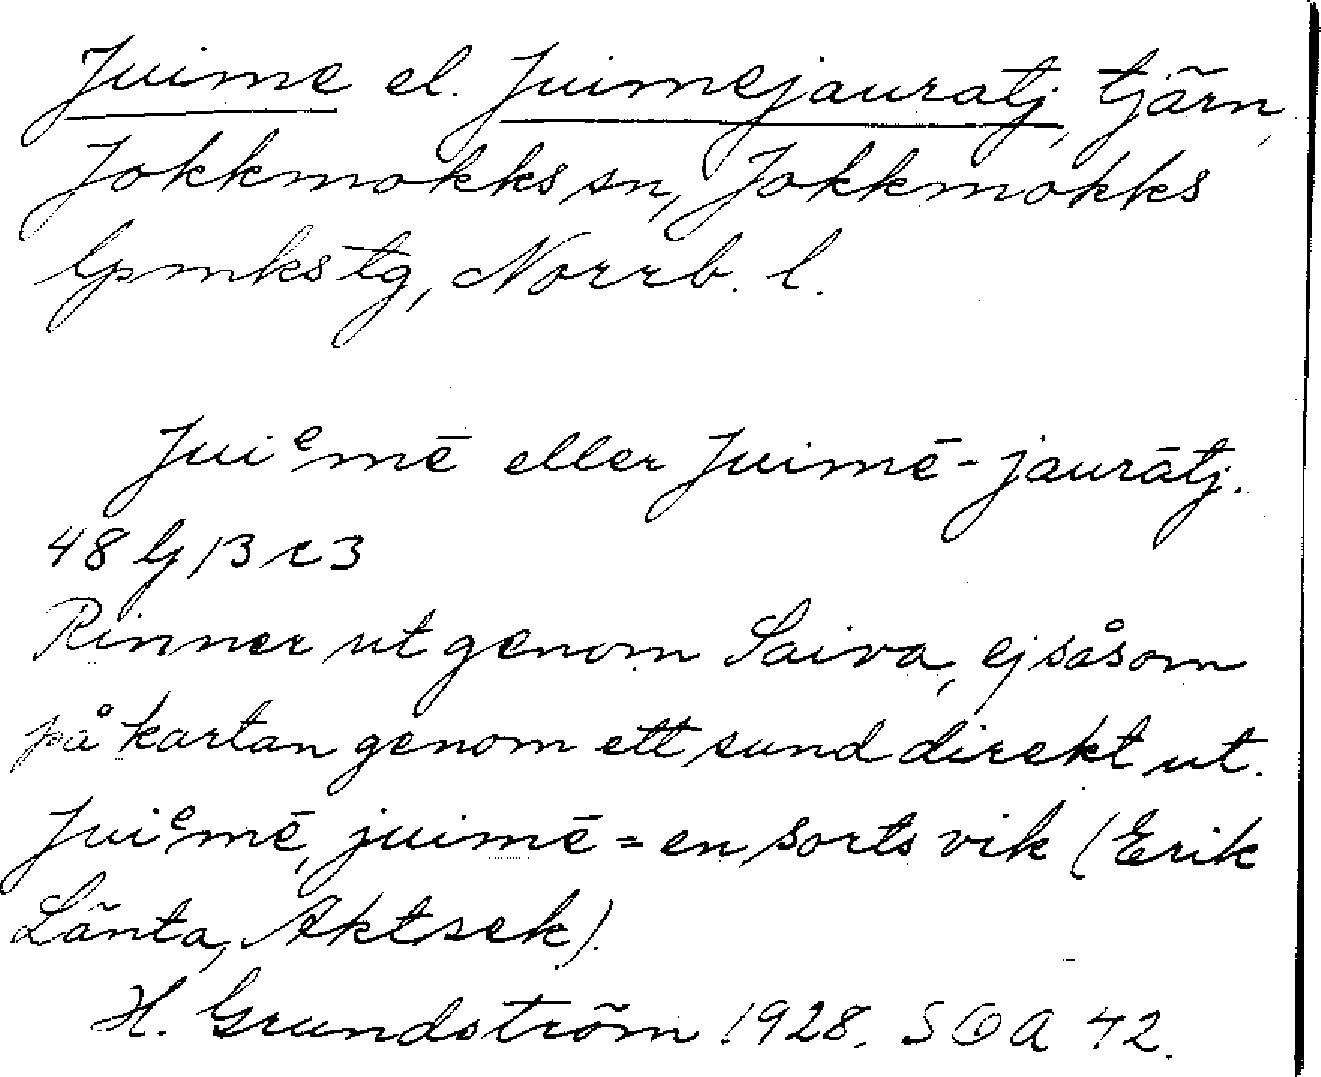 Juime el. Juimejauratj, tjärn,
Jokkmokks sn, Jokkmokks
lpmks tg, Norrb. l.
Juiᵉmē eller Juimē-jaurātj.
48 G 13 c 3
Rinner ut genom Saiva, ej såsom
på kartan genom ett sund direkt ut.
Juiᵉmē, juimē = en sorts vik (Erik
Länta, Aktsek).
H. Grundström 1928. SOA 42.